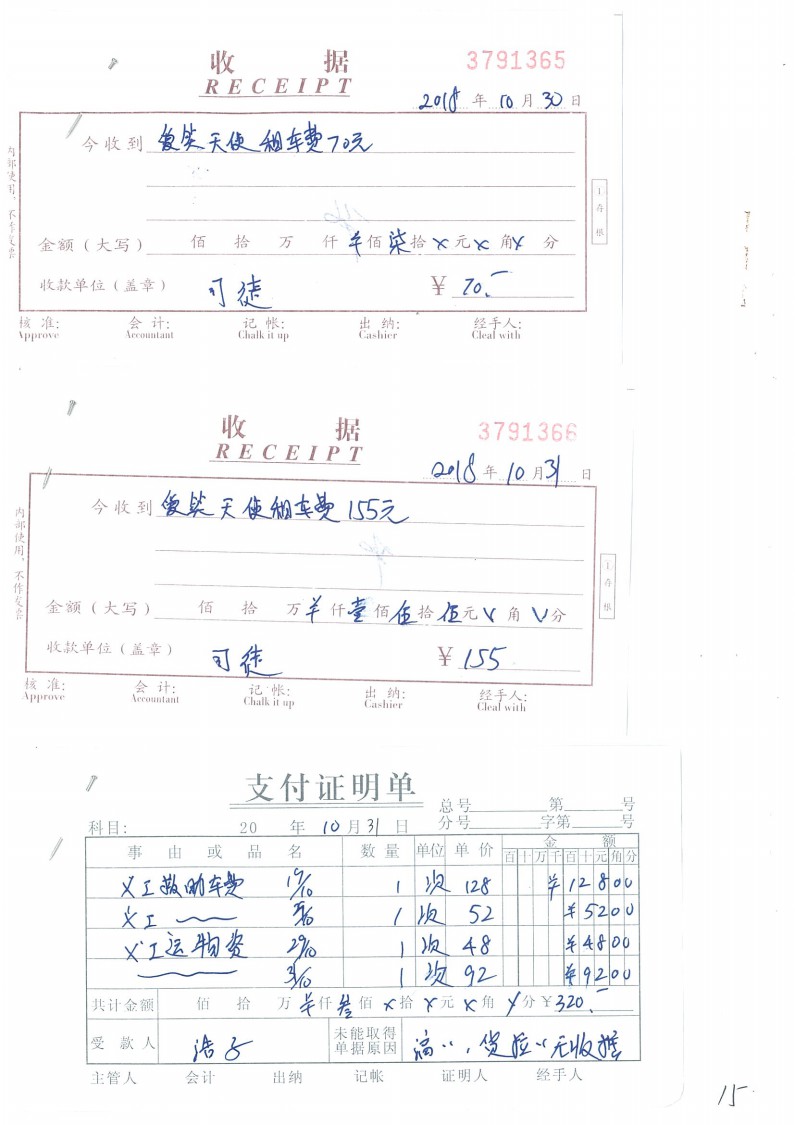 收 据
3791365
RECEIPT
2018 年 10 月 30 日
今收到 天使租车费70元
内部使用，不作发票
①存根
金额（大写） 佰 拾 万 仟 ¥ 佰 柒 拾 × 元 × 角 × 分
收款单位（盖章） 司徒 ¥ 70.-
核 准: 会 计: 记 帐: 出 纳: 经手人:
Approve Accountant Chalk it up Cashier Cleal with
收 据
3791366
RECEIPT
2018 年 10 月 31 日
今收到 天使租车费155元
内部使用，不作发票
①存根
金额（大写） 佰 拾 万 ¥ 仟 壹 佰 伍 拾 伍 元 × 角 × 分
收款单位（盖章） 司徒 ¥ 155
核 准: 会 计: 记 帐: 出 纳: 经手人:
Approve Accountant Chalk it up Cashier Cleal with
支付证明单
总号 第 号
科目: 20 年 10 月 31 日 分号 字第 号
事 由 或 品 名 数 量 单位 单 价 金 额
百 十 万 千 百 十 元 角 分
义工救助车费 19/10 1 次 128 ¥12800
义工 1 次 52 ¥5200
义工运物资 29/10 1 次 48 ¥4800
1 次 92 ¥9200
共计金额 佰 拾 万 ¥ 仟 叁 佰 × 拾 × 元 × 角 × 分 ¥ 320.-
受 款 人 浩子 未能取得单据原因 滴滴，货拉拉无收据
主管人 会计 出纳 记帐 证明人 经手人
15